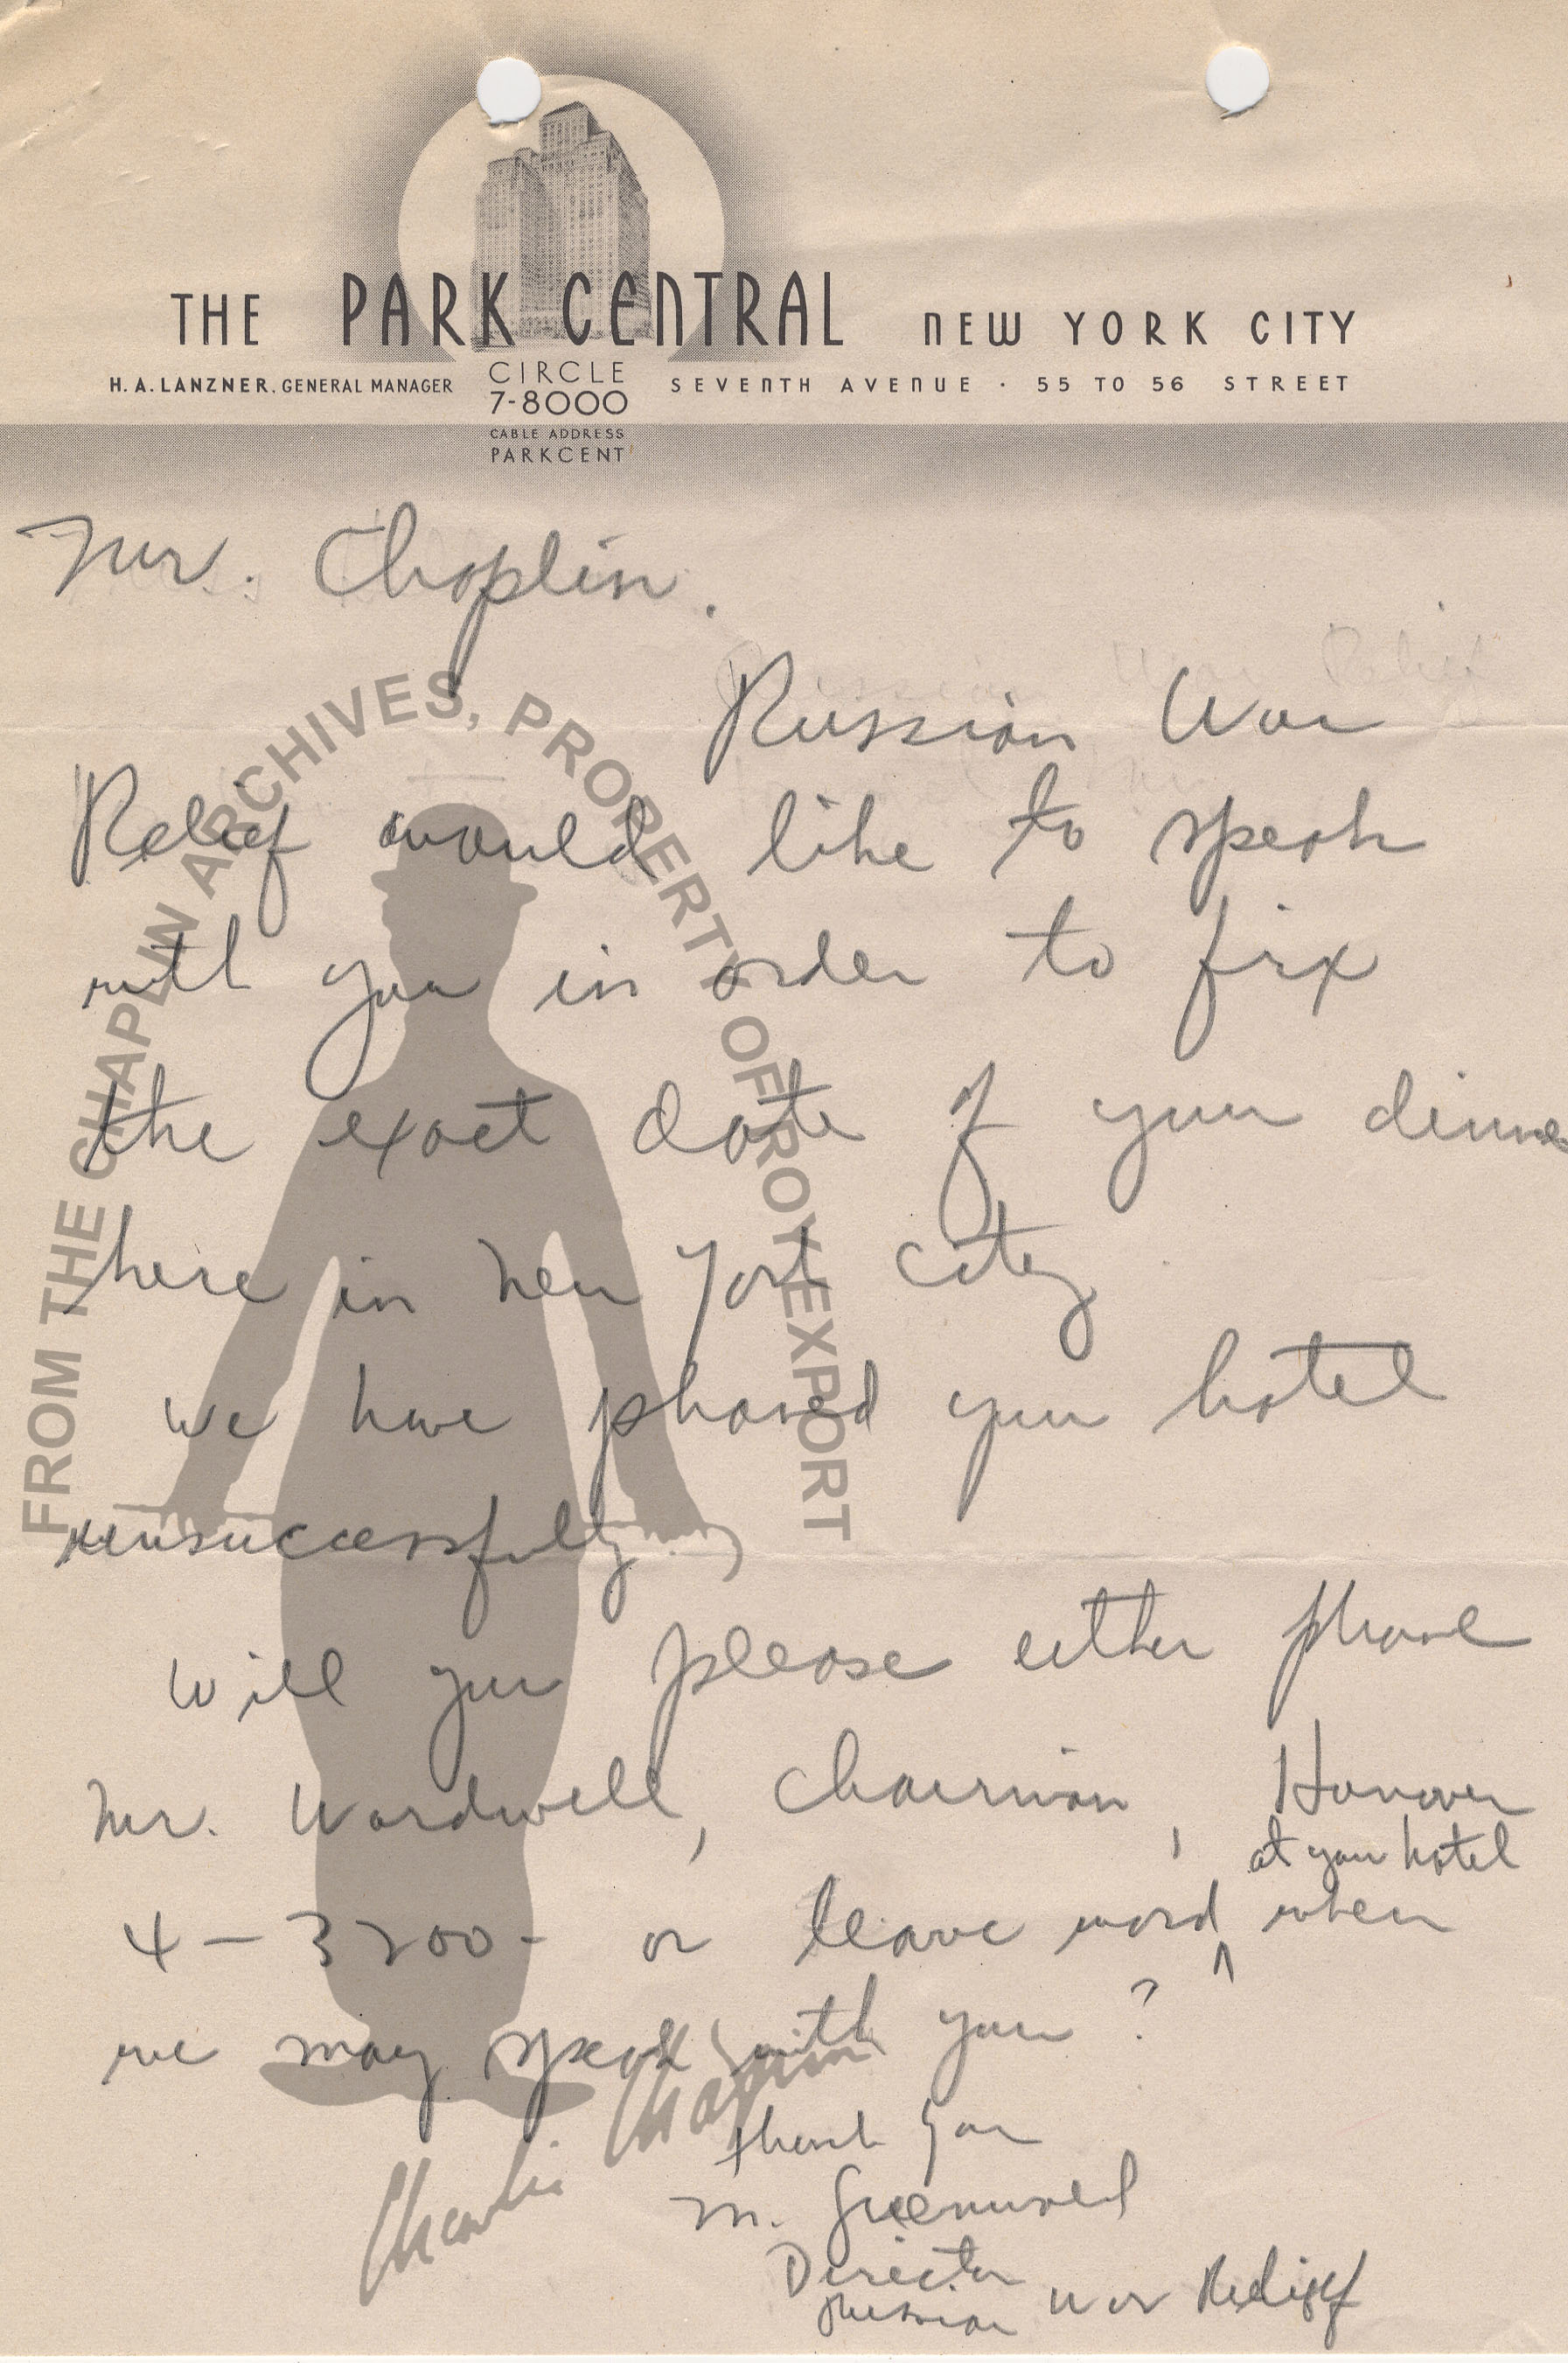 THE PARK CENTRAL NEW YORK CITY
H. A. LANZNER. GENERAL MANAGER
CIRCLE
7-8000
SEVENTH AVENUE · 55 TO 56 STREET
CABLE ADDRESS
PARKCENT
Mr. Chaplin.
Russian War
Relief would like to speak
with you in order to fix
the exact date of your dinner
here in New York City
We have phoned your hotel
unsuccessfully.
Will you please either phone
Mr. Wardwell, Chairman, Hanover
at your hotel
4-3200- or leave word ^ when
we may speak with you?
Thank You
M. Greenwald
Director
Russian War Relief
FROM THE CHAPLIN ARCHIVES, PROPERTY OF ROY EXPORT
Charlie Chaplin